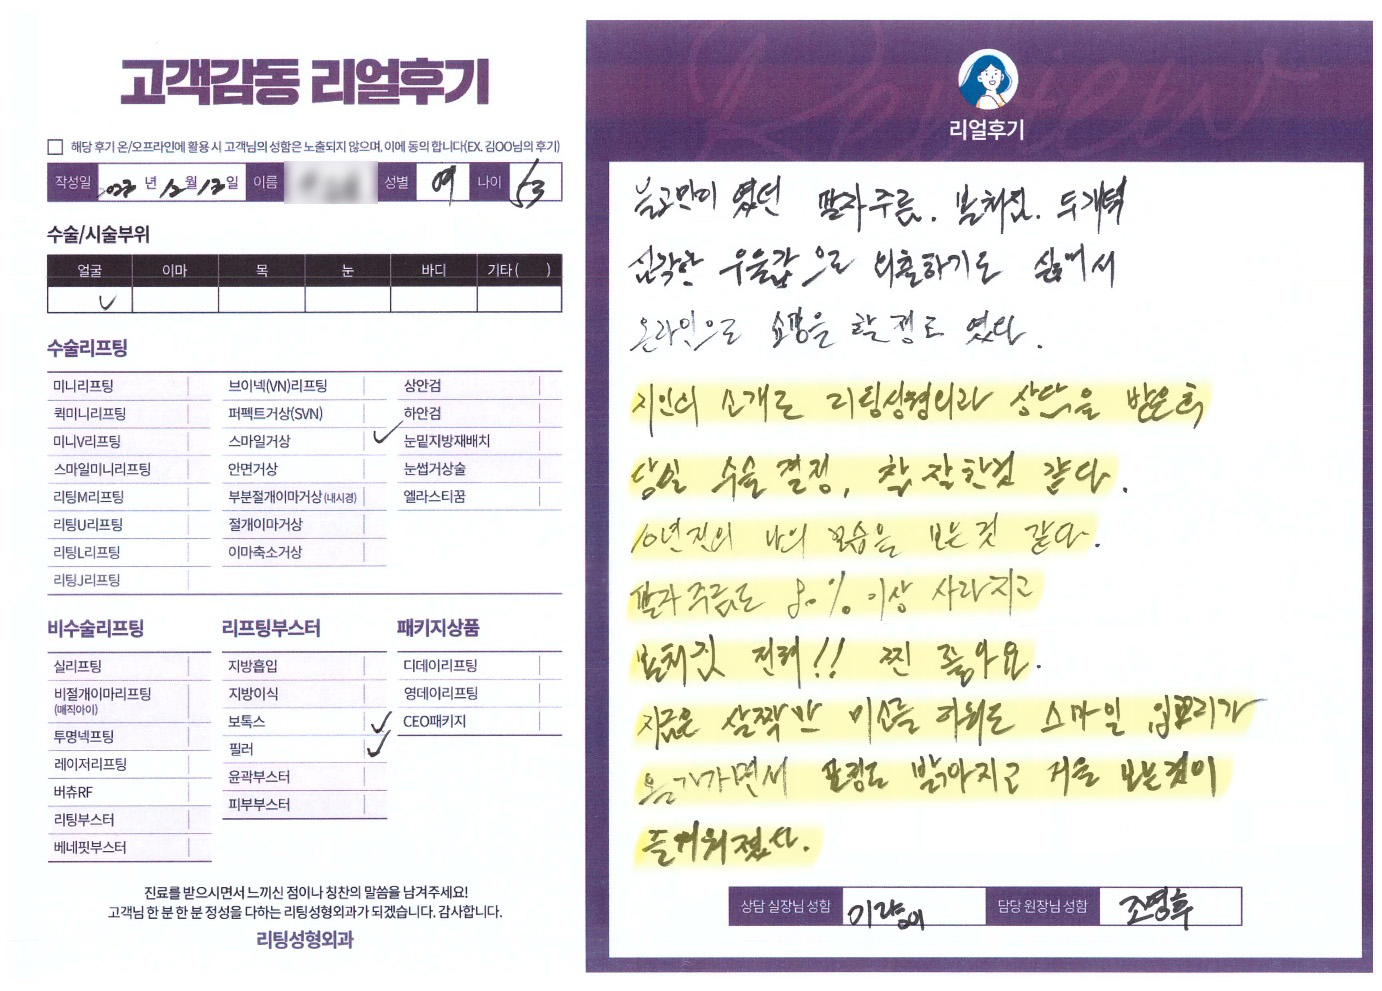 고객감동 리얼후기
해당 후기 온/오프라인에 활용 시 고객님의 성함은 노출되지 않으며, 이에 동의 합니다(EX. 김OO님의 후기)
작성일 2023 년 12 월 13 일 이름 성별 여 나이 53
수술/시술부위
얼굴 이마 목 눈 바디 기타 ( )
수술리프팅
미니리프팅 브이넥(VN)리프팅 상안검
퀵미니리프팅 퍼펙트거상(SVN) 하안검
미니V리프팅 스마일거상 눈밑지방재배치
스마일미니리프팅 안면거상 눈썹거상술
리팅M리프팅 부분절개이마거상 (내시경) 엘라스티꿈
리팅U리프팅 절개이마거상
리팅L리프팅 이마축소거상
리팅J리프팅
비수술리프팅 리프팅부스터 패키지상품
실리프팅 지방흡입 디데이리프팅
비절개이마리프팅 지방이식 영데이리프팅
(매직아이)
보톡스 CEO패키지
투명넥프팅 필러
레이저리프팅 윤곽부스터
버츄RF 피부부스터
리팅부스터
베네핏부스터
진료를 받으시면서 느끼신 점이나 칭찬의 말씀을 남겨주세요!
고객님 한 분 한 분 정성을 다하는 리팅성형외과가 되겠습니다. 감사합니다.
리팅성형외과
Review
리얼후기
팔자주름. 볼처짐. 두개턱
심각한 우울감으로 외출하기도 싫어서
온라인으로 쇼핑을 할 정도 였다.
지인의 소개로 리팅성형외과 상담을 받은 후
당일 수술 결정, 참 잘한것 같다.
10년전의 나의 모습을 보는 것 같다.
팔자주름도 80% 이상 사라지고
볼처짐 전혀!! 찐 좋아요.
지금은 살짝만 미소를 하워도 스마일 입꼬리가
올라가면서 표정도 밝아지고 거울 보는것이
즐거워졌다.
상담 실장님 성함 담당 원장님 성함 조명후